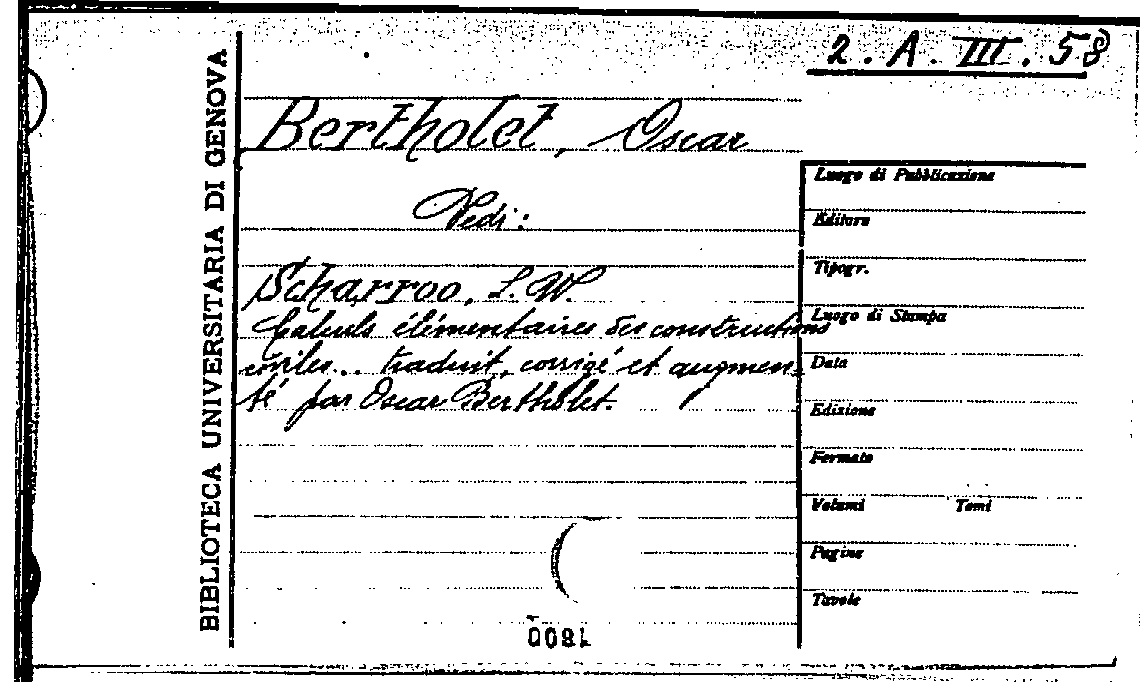 2. A. III. 58
BIBLIOTECA UNIVERSITARIA DI GENOVA
Bertholet, Oscar
Vedi:
Scharroo, L. W.
Calculs élémentaires des constructions
civiles... traduit, corrigé et augmen-
té par Oscar Bertholet.
Luogo di Pubblicazione
Editore
Tipogr.
Luogo di Stampa
Data
Edizione
Formato
Volumi Tomi
Pagine
Tavole